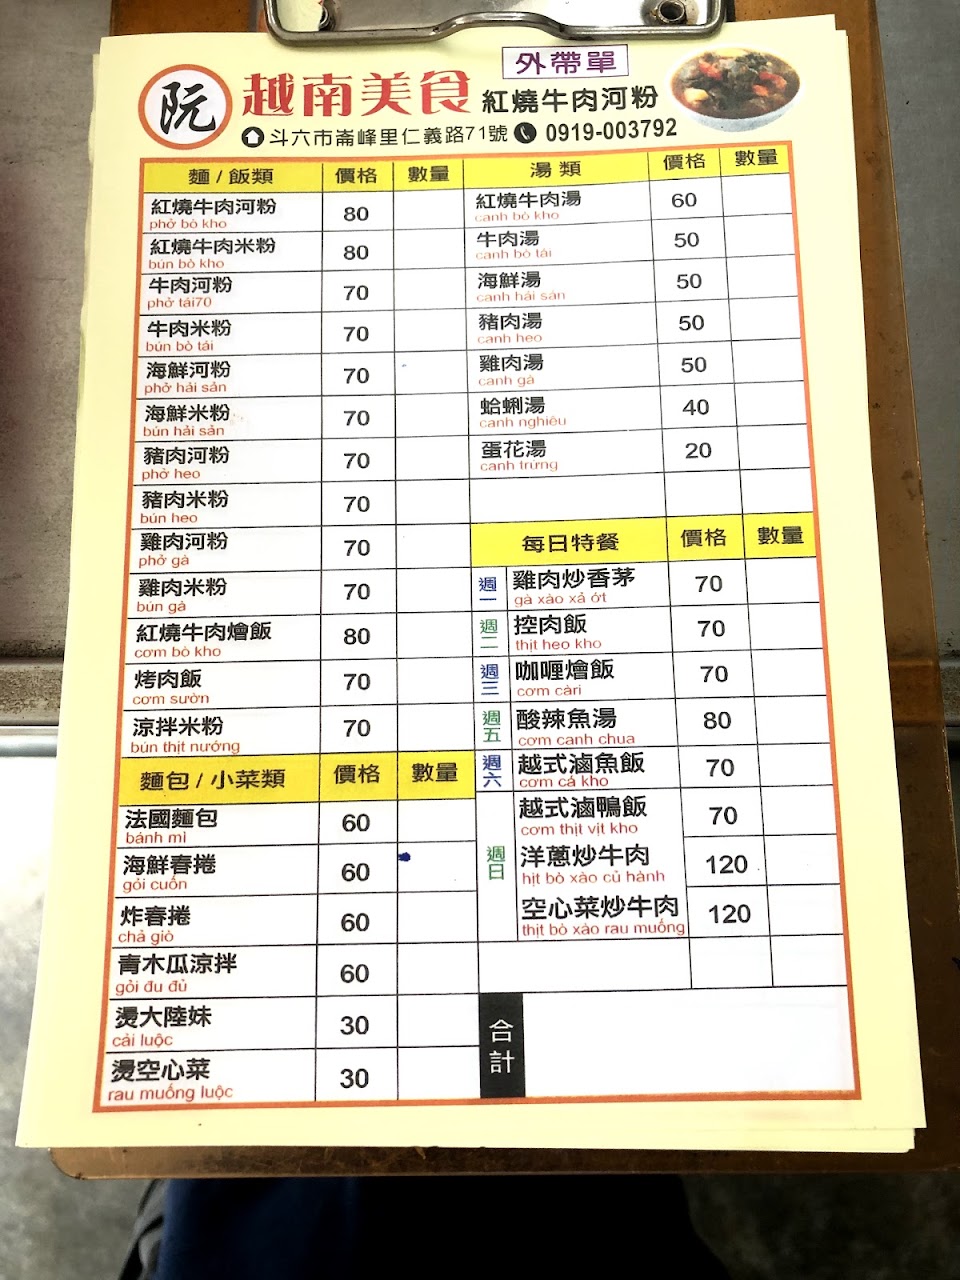 外帶單
阮 越南美食 紅燒牛肉河粉
斗六市崙峰里仁義路71號 0919-003792
麵 / 飯類 價格 數量
紅燒牛肉河粉 80
phở bò kho
紅燒牛肉米粉 80
bún bò kho
牛肉河粉 70
phở tái70
牛肉米粉 70
bún bò tái
海鮮河粉 70
phở hải sản
海鮮米粉 70
bún hải sản
豬肉河粉 70
phở heo
豬肉米粉 70
bún heo
雞肉河粉 70
phở gà
雞肉米粉 70
bún gà
紅燒牛肉燴飯 80
cơm bò kho
烤肉飯 70
cơm sườn
涼拌米粉 70
bún thịt nướng
麵包 / 小菜類 價格 數量
法國麵包 60
bánh mì
海鮮春捲 60
gỏi cuốn
炸春捲 60
chả giò
青木瓜涼拌 60
gỏi đu đủ
燙大陸妹 30
cải luộc
燙空心菜 30
rau muống luộc
湯 類 價格 數量
紅燒牛肉湯 60
canh bò kho
牛肉湯 50
canh bò tái
海鮮湯 50
canh hải sản
豬肉湯 50
canh heo
雞肉湯 50
canh gà
蛤蜊湯 40
canh nghiêu
蛋花湯 20
canh trứng
每日特餐 價格 數量
週一 雞肉炒香茅 70
gà xào xả ớt
週二 控肉飯 70
thịt heo kho
週三 咖喱燴飯 70
cơm càri
週五 酸辣魚湯 80
cơm canh chua
週六 越式滷魚飯 70
cơm cá kho
週日 越式滷鴨飯 70
cơm thịt vịt kho
洋蔥炒牛肉 120
hịt bò xào củ hành
空心菜炒牛肉 120
thịt bò xào rau muống
合計